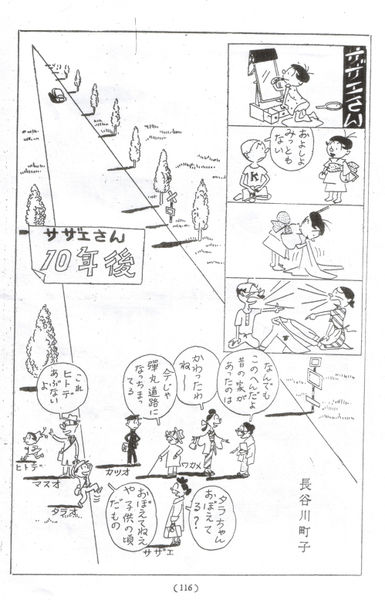 サザエさん
およしよ
みっとも
ない
K
サザエさん
10年後
なんでも
このへんだよ
昔の家が
あったのは
かわったわ
ねー
今じゃ
彈丸道路に
なっちまって
これ
ヒトデ
あぶない
よ
ワカメ
カツオ
マスオ
ヒトデ
タラオ
タラちゃん
おぼえて
る?
おぼえてねえ
や子供の頃
だもの
サザエ
長谷川町子
(116)